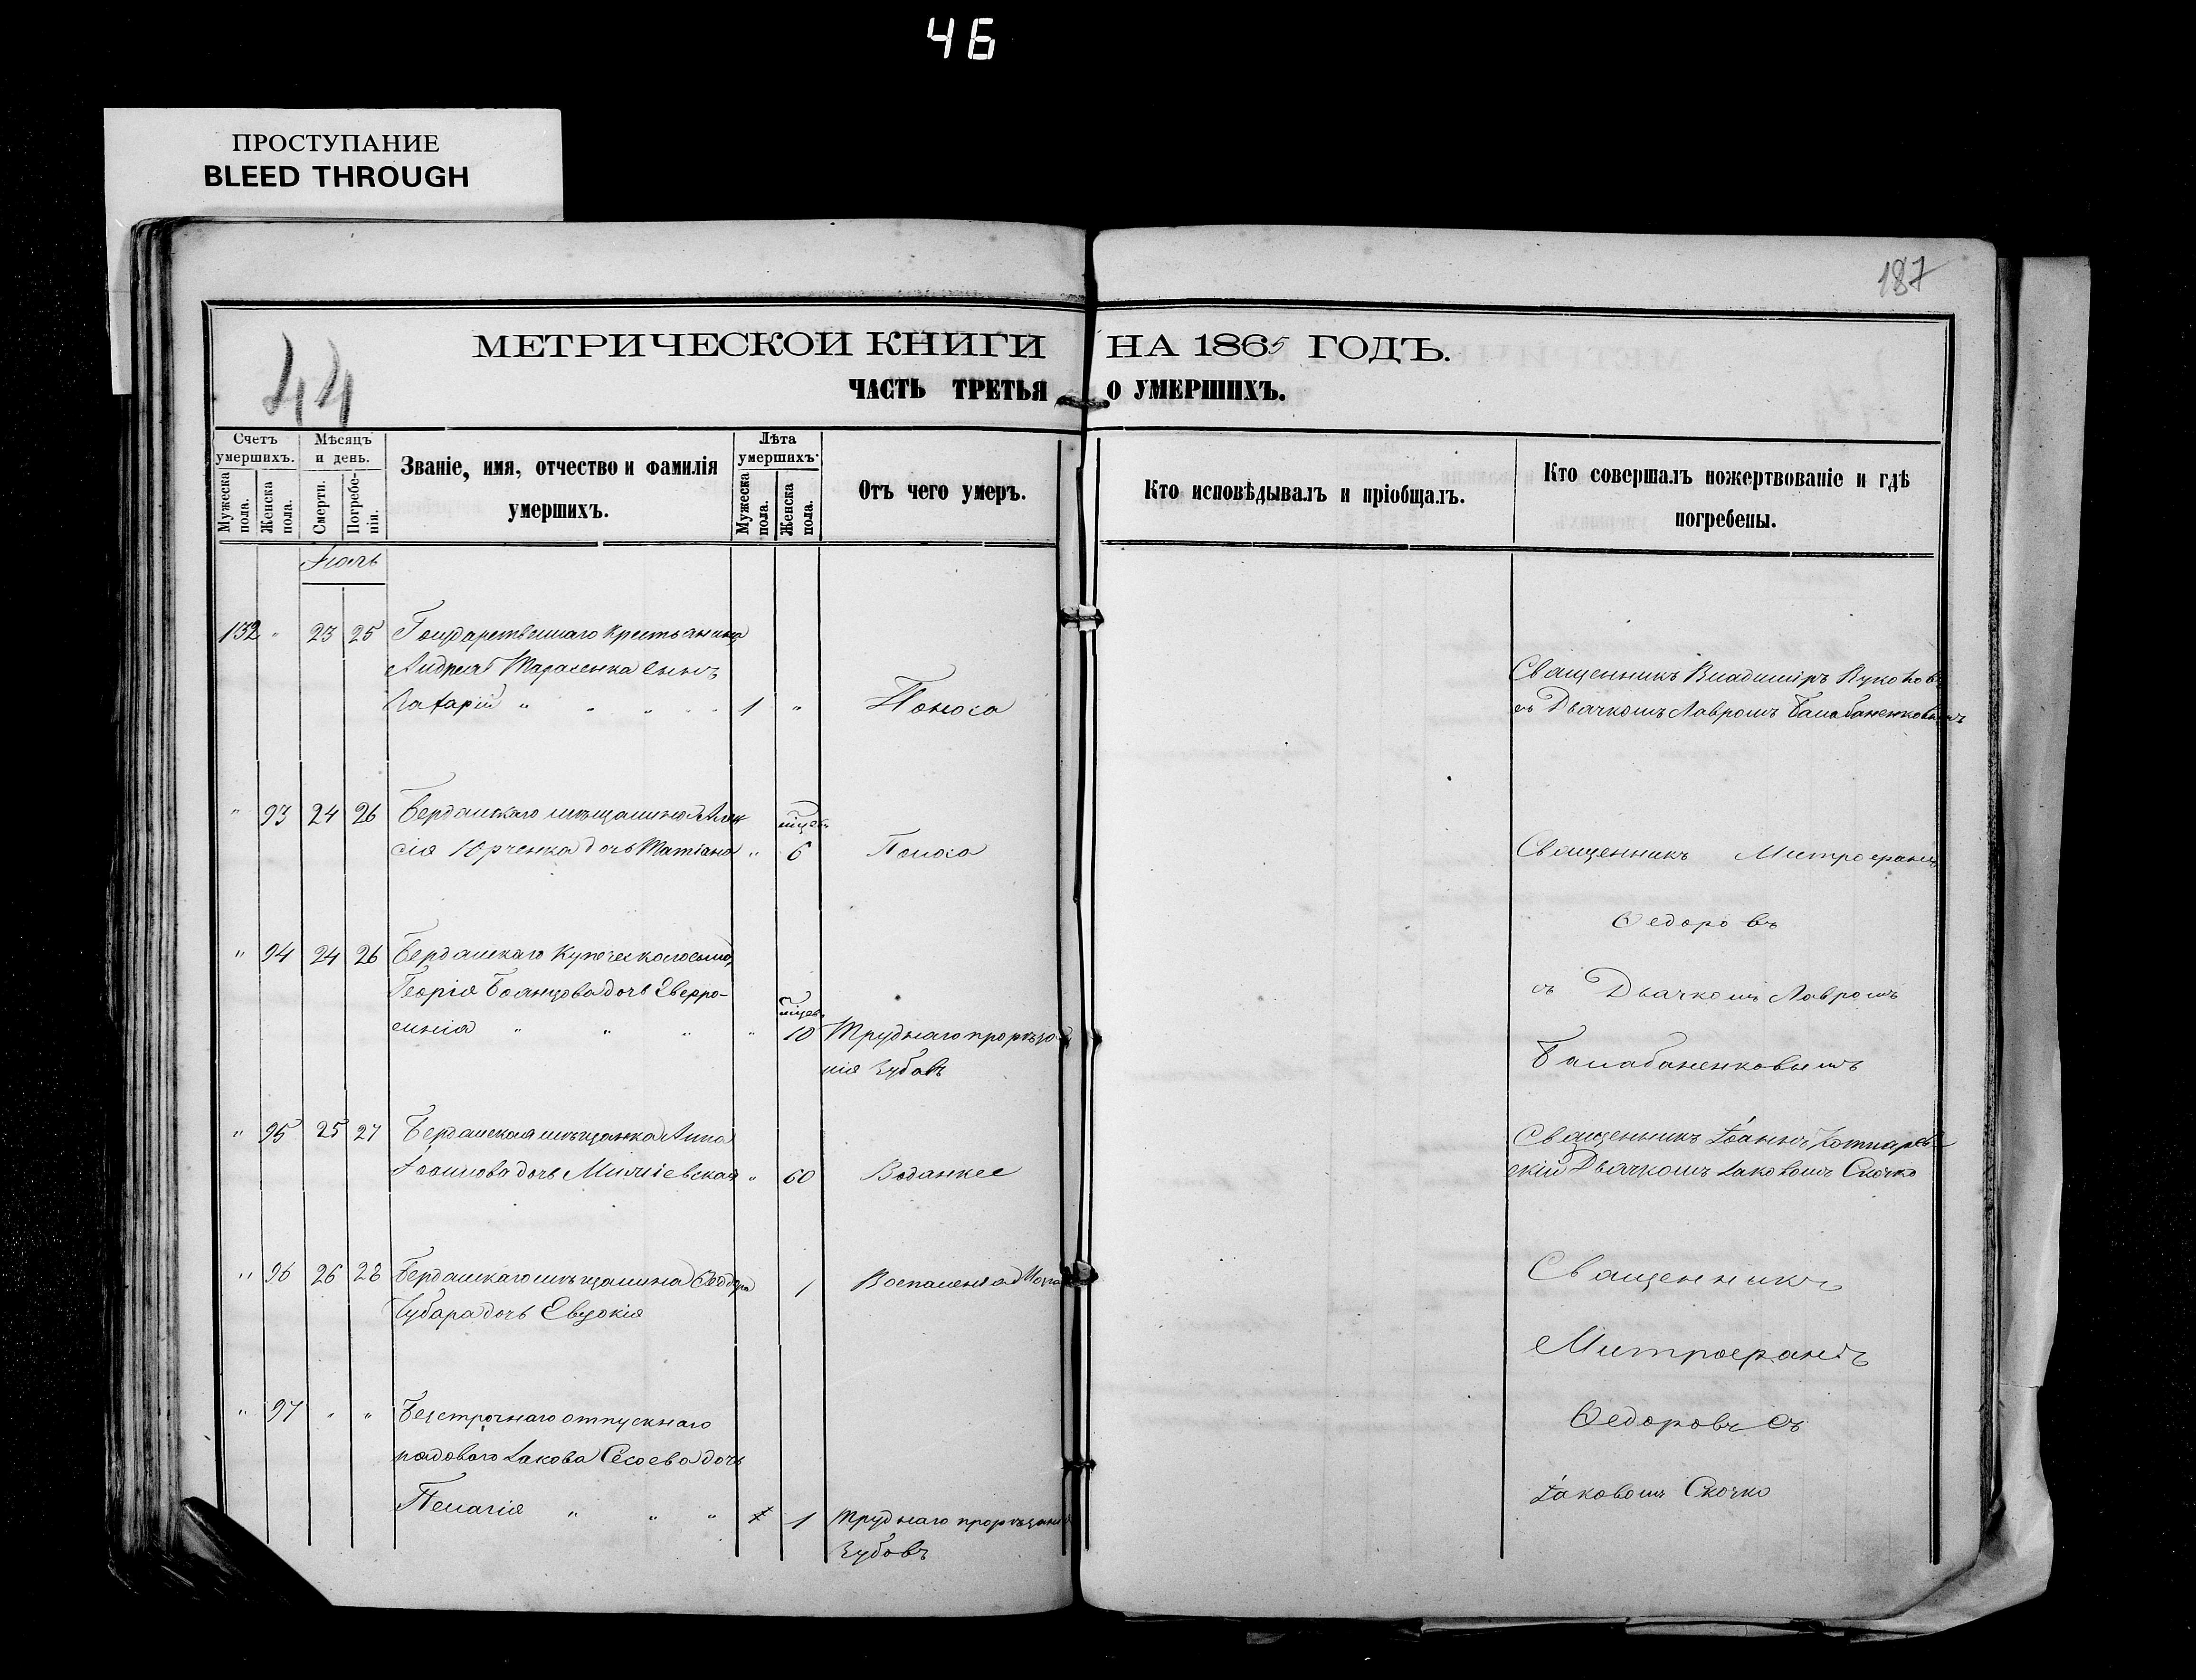 46
ПРОСТУПАНИЕ
BLEED THROUGH
187
44
МЕТРИЧЕСКОЙ КНИГИ НА 1865 ГОДЪ.
ЧАСТЬ ТРЕТЬЯ О УМЕРШИХЪ.
Счетъ умершихъ.
Мужеска пола.
Женска пола.
Мѣсяцъ и день.
Смерти.
Погребенія.
Званіе, имя, отчество и фамилія умершихъ.
Лѣта умершихъ.
Мужеска пола.
Женска пола.
Отъ чего умеръ.
Кто исповѣдывалъ и пріобщалъ.
Кто совершалъ пожертвованіе и гдѣ погребены.
132 " 23 25 Государственнаго крестьянина
Андрея Тарасенка сынъ
Назарій " " " " 1 " Поноса
Священникъ Владиміръ
съ Дьячкомъ Лавромъ Балабаненковымъ
" 93 24 26 Бердянскаго мѣщанина Алек
сія Юрченка дочь Татіана " мѣсец. 6 Поноса
Священникъ Митрофанъ
Ѳедоровъ
съ Дьячкомъ Лавромъ
Балабаненковымъ
" 94 24 26 Бердянскаго Купеческаго сына
Георгія дочь Евфро-
синія " " " " мѣсец. 10 Труднаго прорѣза
нія зубовъ
" 95 25 27 Бердянская мѣщанка Анна
дочь " 60 Водянке
Священникъ Іоаннъ
скій Дьячкомъ Іаковомъ Скочко
" 96 26 28 Бердянскаго мѣщанина Ѳеодора
Чубара дочь Евдокія 1 Воспаленія
Священникъ
Митрофанъ
Ѳедоровъ съ
Іаковомъ Скочко
" 97 " " Безсрочнаго отпускнаго
рядового Іакова Сесоева дочь
Пелагія " " " 1 Труднаго прорѣзанія
Зубовъ